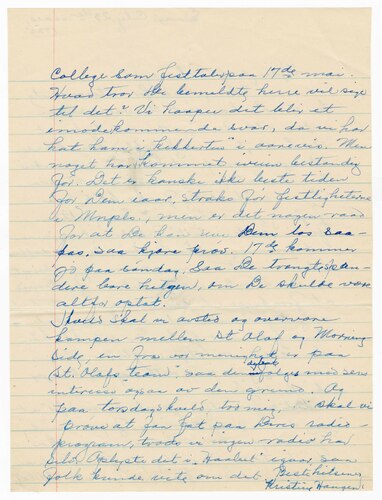 College som festtaler paa 17de mai.
Hvad tror De bemeldte herre vil sige
til det? Vi haaper det blir et
imødekommende svar, da vi har
hat ham i "kikkerten" i aarevis. Men
noget har kommet iveien bestandig
før. Det er kanske ikke beste tiden
for Dem iaar, straks før festligheterne
i Mnpls., men er det nogen raad
for at De kan rive Dem løs saa-
pas, saa kjære prøv. 17de kommer
jo paa søndag. Saa De trængte
bare helgen, om De skulde være
altfor optat.
Ikveld skal vi avsted og overvære
kampen mellem St. Olaf og Morning
Side, en fra vor menighet er paa
St. Olafs "team" saa den følges med stor
interesse ogsaa av den grund. Og
paa torsdagskveld skal vi
prøve at faa fat paa Deres radio-
program, trods vi ingen radio har
selv. Oplyste det i "Hanska" igaar, saa
folk kunde vite om det. Beste hilsener
Kristine Haugen.